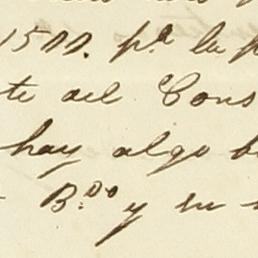 1500. p.ª la p
te del Cons
hay algo b
B.do y su